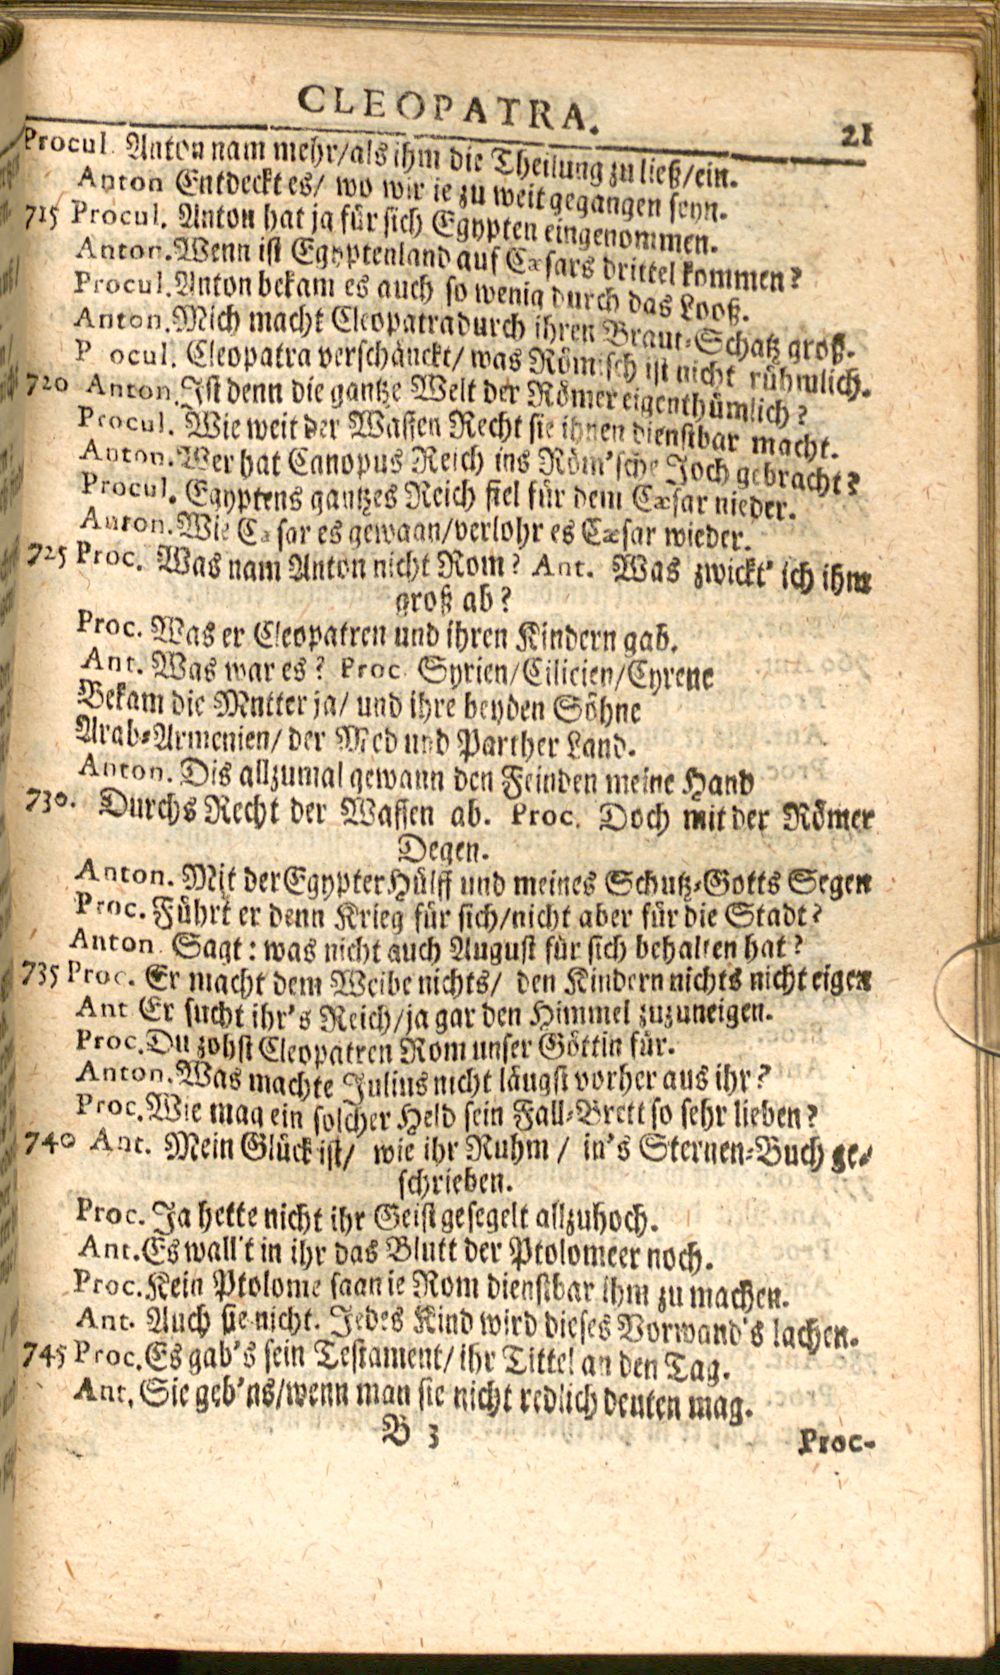 CLEOPATRA.
21
Procul. Anton nam mehr/als ihm die Theilung zu ließ/ein.
Anton Entdeckt es/ wo wir ie zu weit gegangen seyn.
715 Procul. Anton hat ja für sich Egypten eingenommen.
Anton. Wenn ist Egyptenland auf Cæsars drittel kommen?
Procul. Anton bekam es auch so wenig durch das Looß.
Anton. Mich macht Cleopatra durch ihren Braut-Schatz groß.
P ocul. Cleopatra verschänckt/ was Römisch ist nicht rühmlich.
720 Anton. Ist denn die gantze Welt der Römer eigenthümlich?
Procul. Wie weit der Waffen Recht sie ihnen dienstbar macht.
Anton. Wer hat Canopus Reich ins Röm'sche Joch gebracht?
Procul. Egyptens gantzes Reich fiel für dem Cæsar nieder.
Anton. Wie Cæsar es gewaan/verlohr es Cæsar wieder.
725 Proc. Was nam Anton nicht Rom? Ant. Was zwickt' ich ihm
groß ab?
Proc. Was er Cleopatren und ihren Kindern gab.
Ant. Was war es? Proc. Syrien/Cilicien/Cyrene
Bekam die Mutter ja/ und ihre beyden Söhne
Arab-Armenien/ der Med und Parther Land.
Anton. Dis allzumal gewann den Feinden meine Hand
730. Durchs Recht der Waffen ab. Proc. Doch mit der Römer
Degen.
Anton. Mit der Egypter Hülff und meines Schutz-Gotts Segen
Proc. Führt er denn Krieg für sich/nicht aber für die Stadt?
Anton. Sagt: was nicht auch August für sich behalten hat?
735 Proc. Er macht dem Weibe nichts/ den Kindern nichts nicht eigen
Ant Er sucht ihr's Reich/ja gar den Himmel zuzuneigen.
Proc. Du zohst Cleopatren Rom unser Göttin für.
Anton. Was machte Julius nicht längst vorher aus ihr?
Proc. Wie mag ein solcher Held sein Fall-Brett so sehr lieben?
740 Ant. Mein Glück ist/ wie ihr Ruhm/ in's Sternen-Buch ge-
schrieben.
Proc. Ja hette nicht ihr Geist gesegelt allzuhoch.
Ant. Es wall't in ihr das Blutt der Ptolomeer noch.
Proc. Kein Ptolome saan ie Rom dienstbar ihm zu machen.
Ant. Auch sie nicht. Jedes Kind wird dieses Vorwand's lachen.
745 Proc. Es gab's sein Testament/ ihr Tittel an den Tag.
Ant. Sie geb'ns/wenn man sie nicht redlich deuten mag.
B 3
Proc-